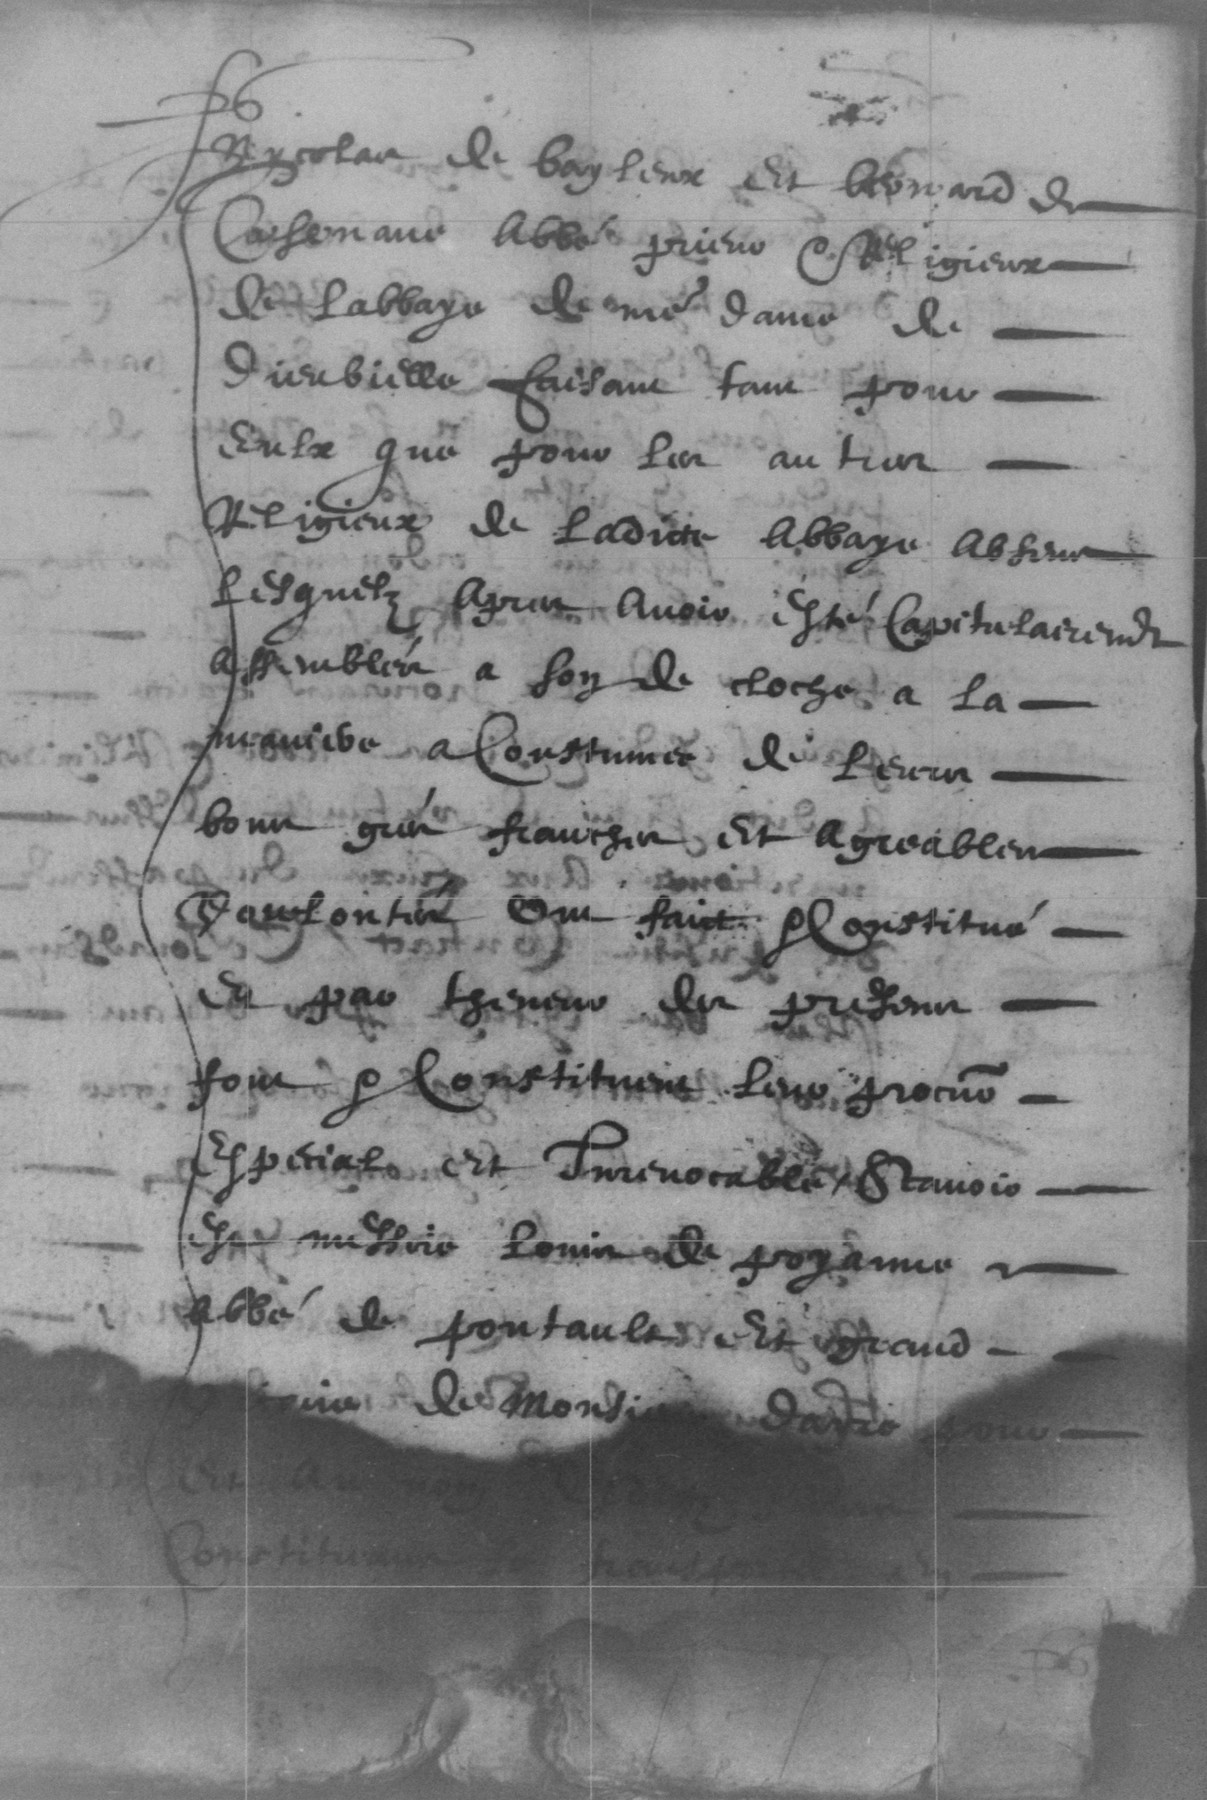 Nycolas de baylenx et bernard de
Casenave abbé prieur & Religieux
de labbaye de nre dame de
Dieubielle faisant tant pour
eulx que pour les autres
Religieux de ladicte abbaye absens
lesquelz apres avoir esté Capitulairemt
assemblés a son de cloche a la
maniere aCoustumee de leurs
bons grés franches et agreables
vaulontés Ont faict & Constitué
et par theneur des presens
font & Constituent leur procur
especial et Inrevocable Scavoir
est messire louis de poyanne
abbé de pontault et grand
de Monsieur pour
et au nom
Constituans